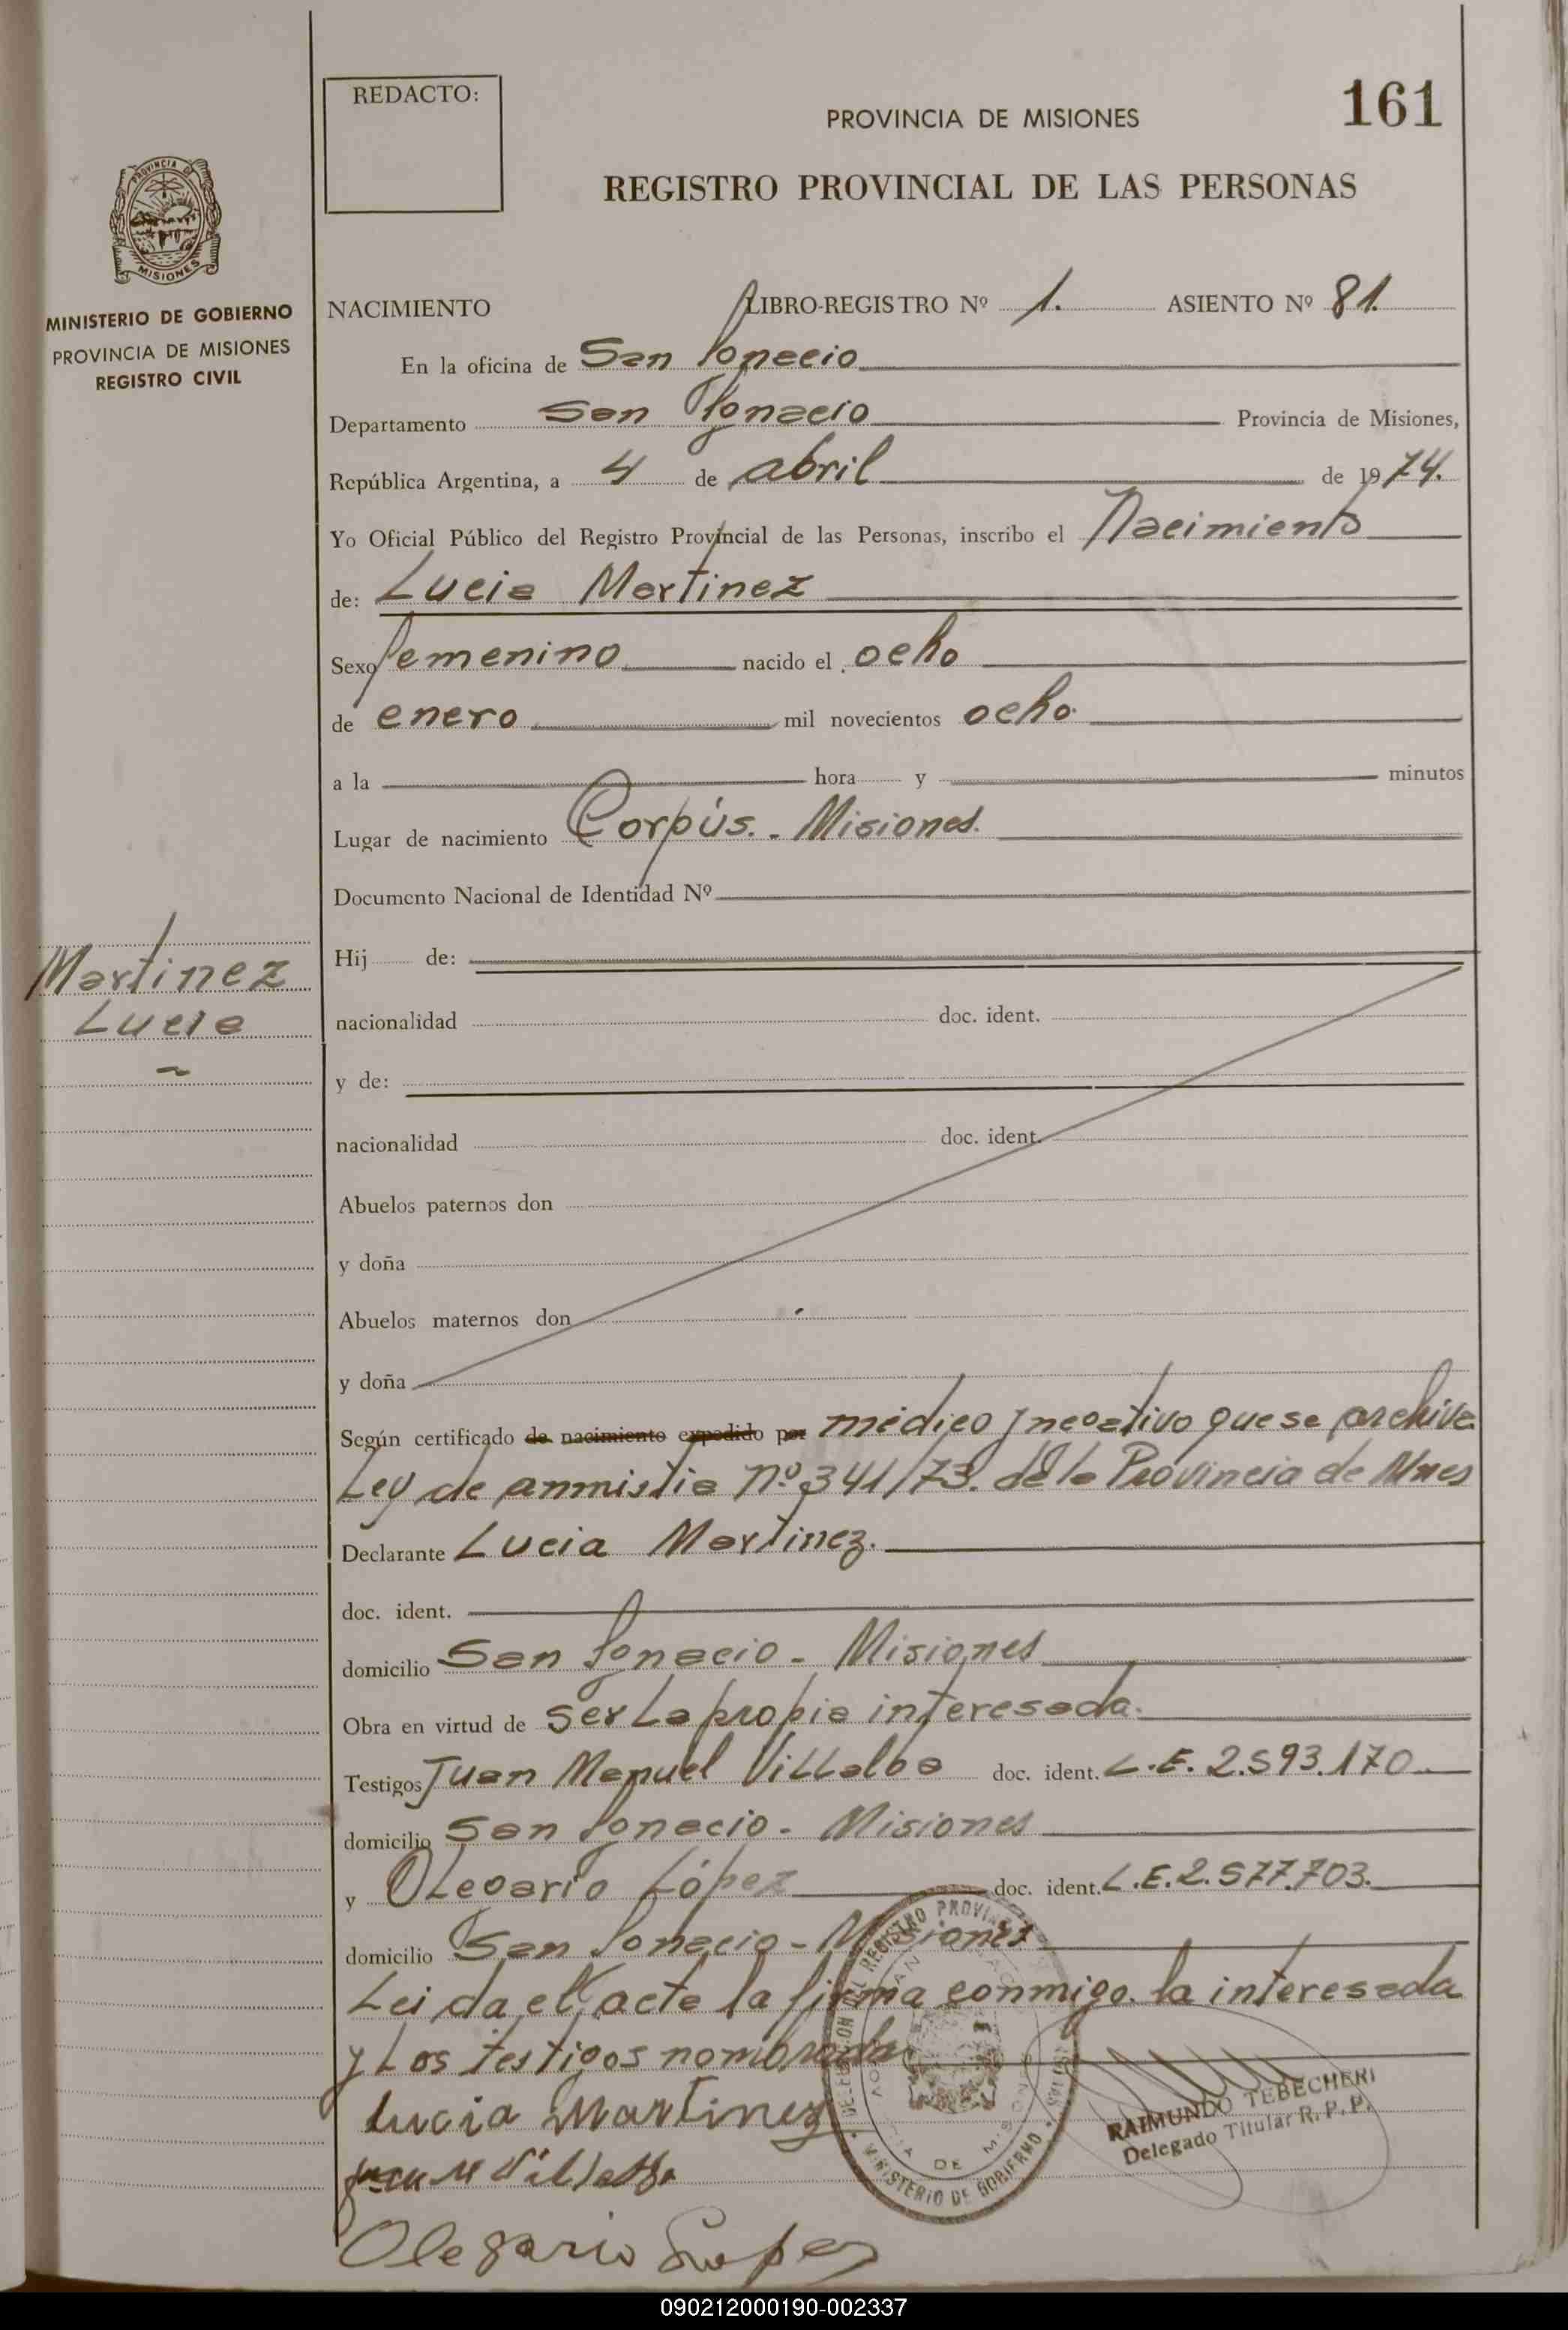 REDACTO:
PROVINCIA DE MISIONES
161
REGISTRO PROVINCIAL DE LAS PERSONAS
PROVINCIA DE
MISIONES
MINISTERIO DE GOBIERNO
PROVINCIA DE MISIONES
REGISTRO CIVIL
NACIMIENTO LIBRO-REGISTRO Nº 1. ASIENTO Nº 81.
En la oficina de San Ignacio
Departamento San Ignacio Provincia de Misiones,
República Argentina, a 4 de abril de 1974.
Yo Oficial Público del Registro Provincial de las Personas, inscribo el Nacimiento
de: Lucia Martinez
Sexo femenino nacido el ocho
de enero mil novecientos ocho
a la hora y minutos
Lugar de nacimiento Corpús. - Misiones.
Documento Nacional de Identidad Nº
Hij de:
Martinez
Lucia
nacionalidad doc. ident.
y de:
nacionalidad doc. ident.
Abuelos paternos don
y doña
Abuelos maternos don
y doña
Según certificado de nacimiento expedido por médico y negativo que se archiva
Ley de anmistia nº 341/73. de la Provincia de Mnes
Declarante Lucia Martinez.
doc. ident.
domicilio San Ignacio - Misiones
Obra en virtud de ser La propia interesada.
Testigos Juan Manuel Villalba doc. ident. L.E. 2.593.170
domicilio San Ignacio - Misiones
y Olegario López doc. ident. L.E. 2.577.703.
domicilio San Ignacio - Misiones
Leida el acta la firma conmigo la interesada
y Los testigos nombrados
Lucia Martinez
Juan M Villalba
Olegario Lopez
DELEGACION DEL REGISTRO PROVINCIAL
MINISTERIO DE GOBIERNO
RAIMUNDO TEBECHERI
Delegado Titular R. P. P.
090212000190-002337